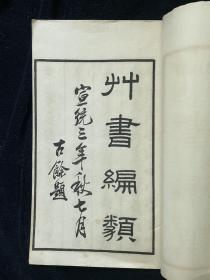 艸書編類
宣統三年秋七月
古餘題